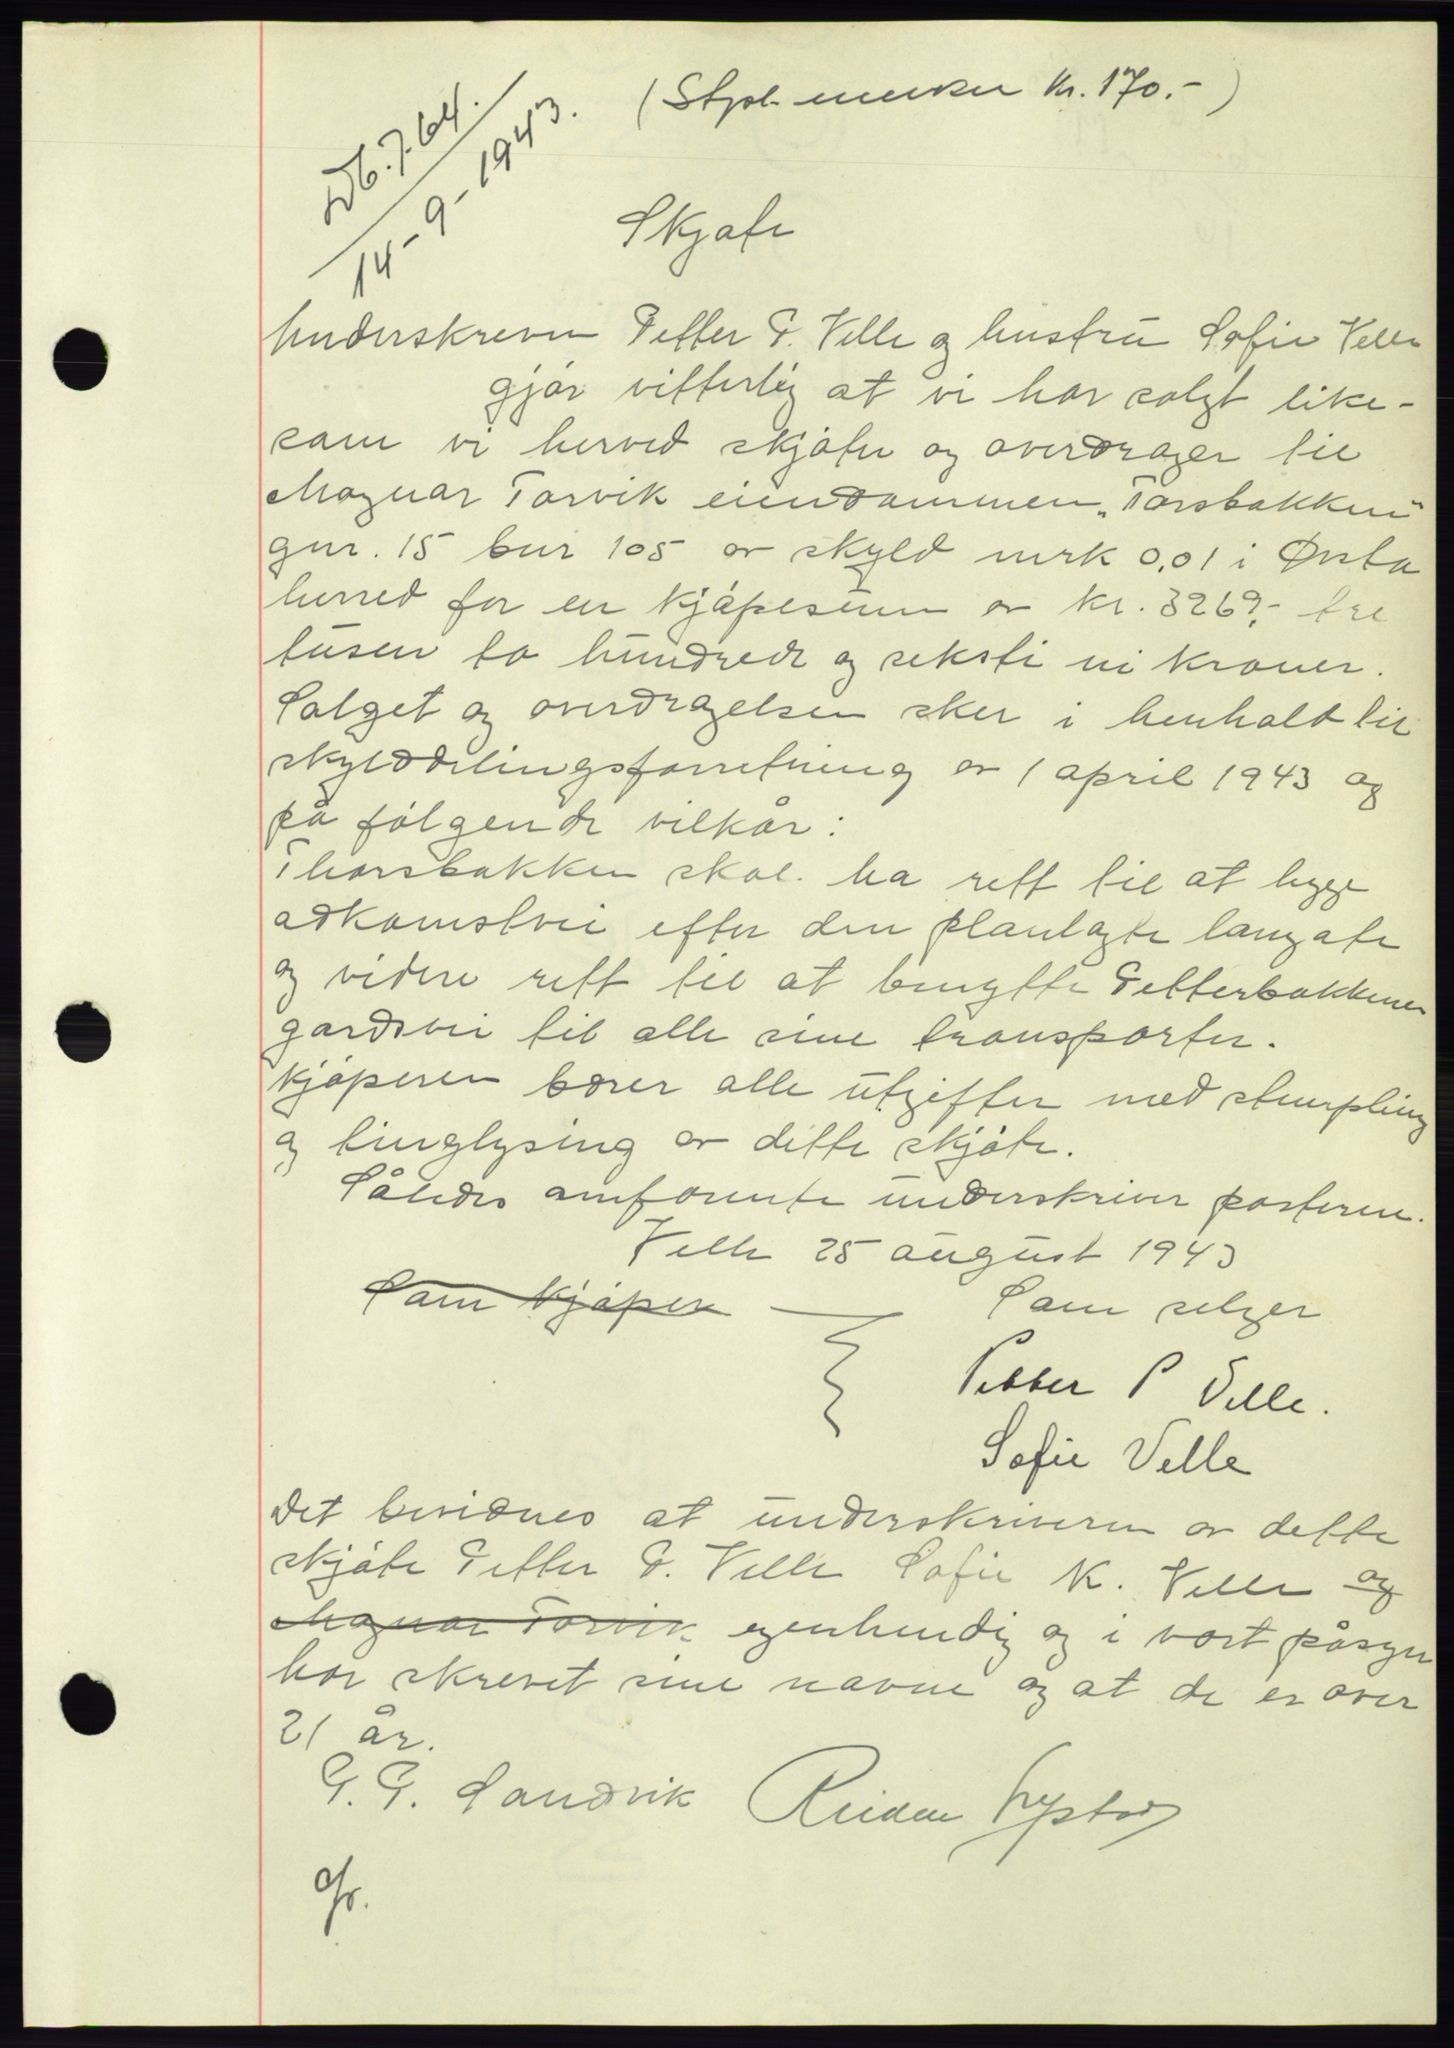 (Stpl. merker kr. 170.-)
Db. 764.
14-9-1943.
Skjøte
Underskreven Petter P. Velle og hustru Sofie Velle
gjør vitterlig at vi har solgt like-
som vi herved skjøter og overdrager til
Magnar Torvik eiendommen „Torsbakken"
gnr. 15 bnr 105 av skyld mrk 0,01 i Ørsta
herred for en kjøpesum av kr. 3269,- tre
tusen to hundrede og seksti ni kroner.
Salget og overdragelsen sker i henhold til
skylddelingsforretning av 1 april 1943 og
på følgende vilkår:
Thorsbakken skal ha rett til at bygge
adkomstvei efter den planlagte
og videre rett til at benytte Petterbakkens
gardsvei til alle sine transporter.
Kjøperen bærer alle utgifter med stempling
og tinglysing av dette skjøte.
Således omforente underskriver partene.
Velle 25 august 1943
Som kjøper Som selger
Petter P Velle.
Sofie Velle
Det bevidnes at underskriveren av dette
skjøte Petter P. Velle Sofie K. Velle og
Magnar Torvik egenhendig og i vort påsyn
har skrevet sine navne og at de er over
21 år.
P. P. Sandvik Reidar